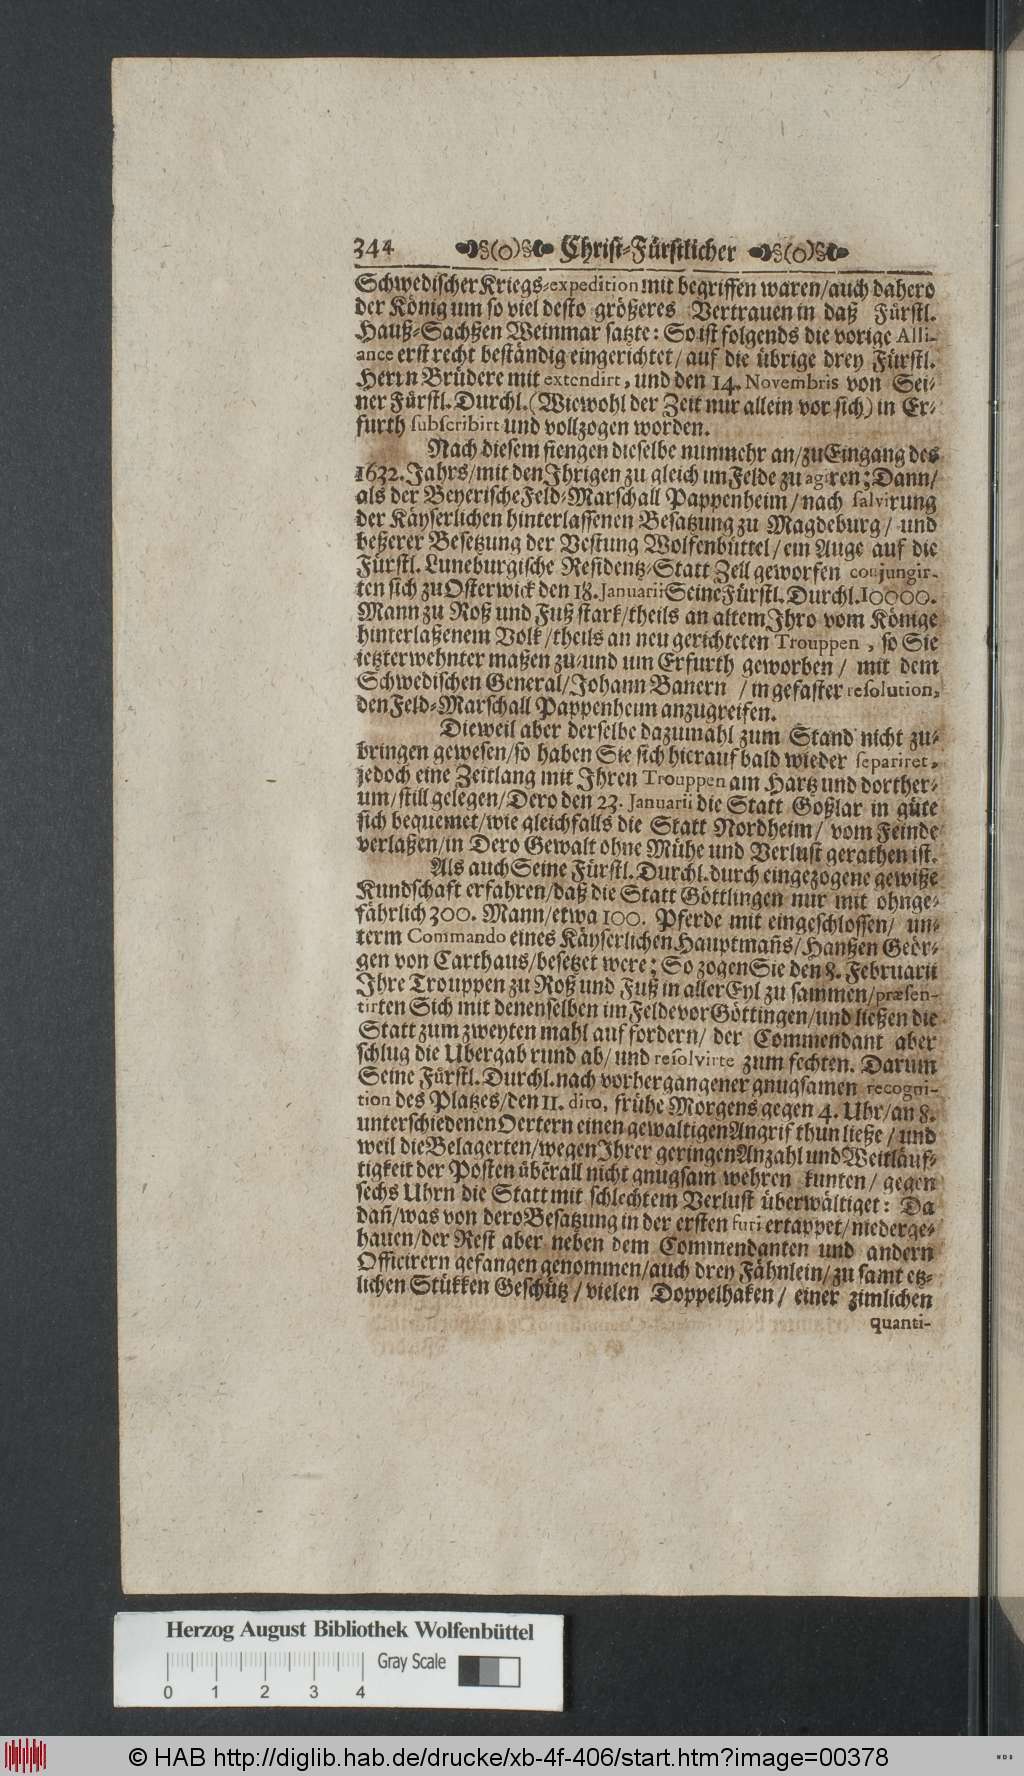 344 Christ-Fürstlicher
Schwedischer Kriegs-expedition mit begriffen waren/ auch dahero
der König um so viel desto größeres Vertrauen in daß Fürstl.
Hauß-Sachßen Weinmar satzte: So ist folgends die vorige Alli-
ance erst recht beständig eingerichtet/ auf die übrige drey Fürstl.
Herrn Brüdere mit extendirt, und den 14. Novembris von Sei-
ner Fürstl. Durchl. (Wiewohl der Zeit nur allein vor sich) in Er-
furth subscribirt und vollzogen worden.
Nach diesem fiengen dieselbe nunmehr an/ zu Eingang des
1632. Jahrs/ mit den Ihrigen zu gleich im Felde zu agiren; Dann/
als der Beyerische Feld-Marschall Pappenheim/ nach salvirung
der Käyserlichen hinterlassenen Besatzung zu Magdeburg/ und
beßerer Besetzung der Vestung Wolfenbüttel/ ein Auge auf die
Fürstl. Luneburgische Residentz-Statt Zell geworfen conjungir-
ten sich zu Osterwick den 18. Januarii Seine Fürstl. Durchl. 10000.
Mann zu Roß und Fuß stark/ theils an altem Ihro vom Könige
hinterlaßenem Volk/ theils an neu gerichteten Trouppen, so Sie
ietzterwehnter maßen zu- und um Erfurth geworben/ mit dem
Schwedischen General/ Johann Banern/ in gefaster resolution,
den Feld-Marschall Pappenheim anzugreifen.
Dieweil aber derselbe dazumahl zum Stand nicht zu-
bringen gewesen/ so haben Sie sich hierauf bald wieder separiret,
jedoch eine Zeitlang mit Ihren Trouppen am Hartz und dorther-
um/ still gelegen/ Dero den 23. Januarii die Statt Goßlar in güte
sich bequemet/ wie gleichfalls die Statt Nordheim/ vom Feinde
verlaßen/ in Dero Gewalt ohne Mühe und Verlust gerathen ist.
Als auch Seine Fürstl. Durchl. durch eingezogene gewiße
Kundschaft erfahren/ daß die Statt Göttlingen nur mit ohnge-
fährlich 300. Mann/ etwa 100. Pferde mit eingeschlossen/ un-
term Commando eines Käyserlichen Hauptmañs/ Hanßen Geör-
gen von Carthaus/ besetzet were; So zogen Sie den 8. Februarii
Ihre Trouppen zu Roß und Fuß in aller Eyl zu sammen/ præsen-
tirten Sich mit denenselben im Felde vor Göttingen/ und ließen die
Statt zum zweyten mahl auf fordern/ der Commendant aber
schlug die Ubergab rund ab/ und resolvirte zum fechten. Darum
Seine Fürstl. Durchl. nach vorhergangener gnugsamen recogni-
tion des Platzes/ den 11. dito, frühe Morgens gegen 4. Uhr/ an 8.
unterschiedenen Oertern einen gewaltigen Angrif thun ließe/ und
weil die Belagerten/ wegen Ihrer geringen Anzahl und Weitläuf-
tigkeit der Posten überall nicht gnugsam wehren kunten/ gegen
sechs Uhrn die Statt mit schlechtem Verlust überwältiget: Da
dañ/ was von dero Besatzung in der ersten furi ertappet/ niederge-
hauen/ der Rest aber neben dem Commendanten und andern
Officirern gefangen genommen/ auch drey Fähnlein/ zu samt etz-
lichen Stükken Geschütz/ vielen Doppelhaken/ einer zimlichen
quanti-
Herzog August Bibliothek Wolfenbüttel
Gray Scale
0 1 2 3 4
© HAB http://diglib.hab.de/drucke/xb-4f-406/start.htm?image=00378